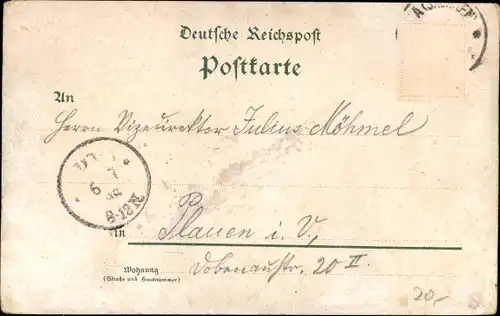 A (SACHSEN) *
Deutsche Reichspost
Postkarte
An
Herrn Vizedirektor Julius Möhmel
9 7
98
8-12N
In Plauen i. V.,
Dobenaustr. 20 II.
Wohnung
(Straße und Hausnummer)
20,-